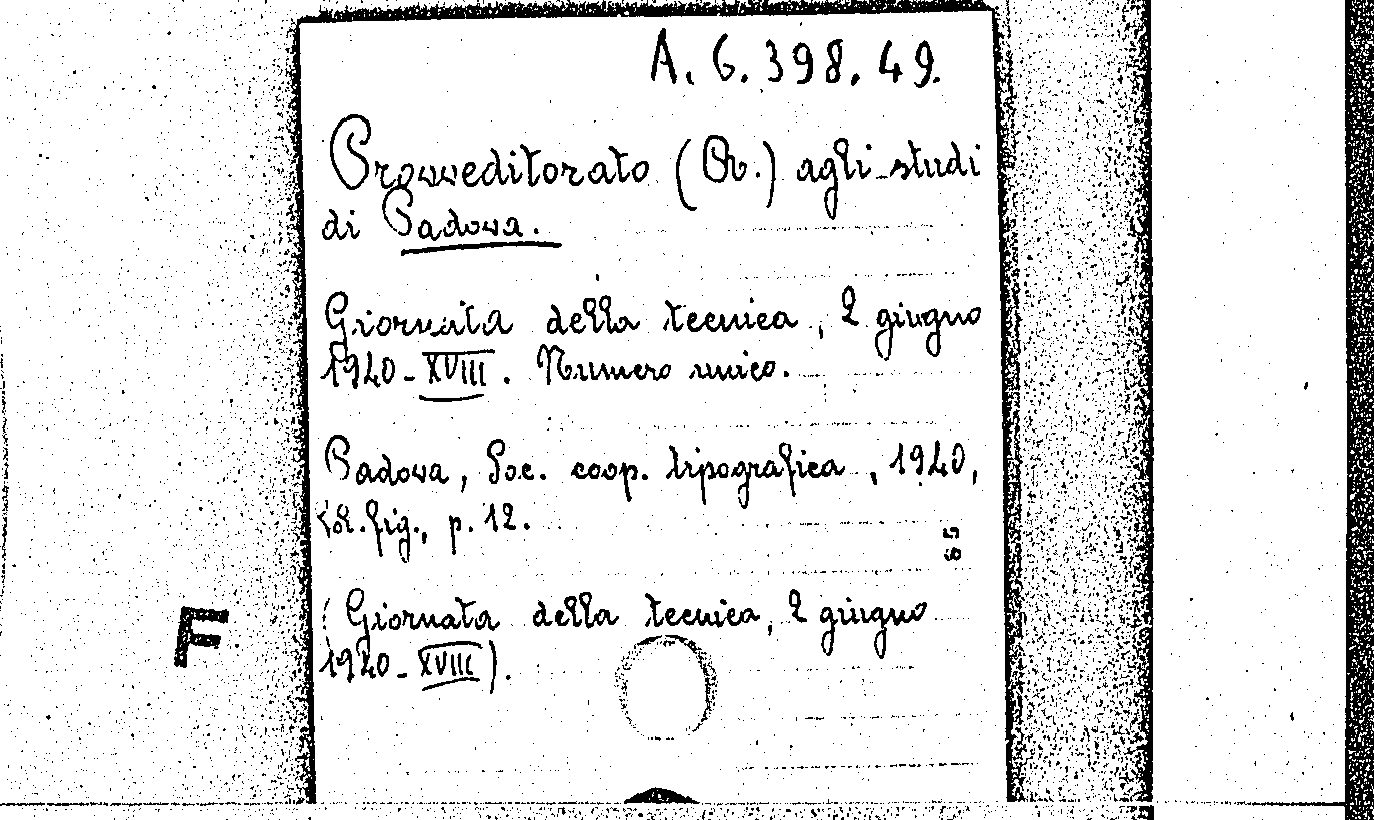 A. 6. 398. 49.
Provveditorato (R.) agli studi
di Padova.
Giornata della tecnica, 2 giugno
1940-XVIII. Numero unico.
Padova, Soc. coop. tipografica, 1940,
fig., p. 12.
65
(Giornata della tecnica, 2 giugno
F
1940-XVIII).